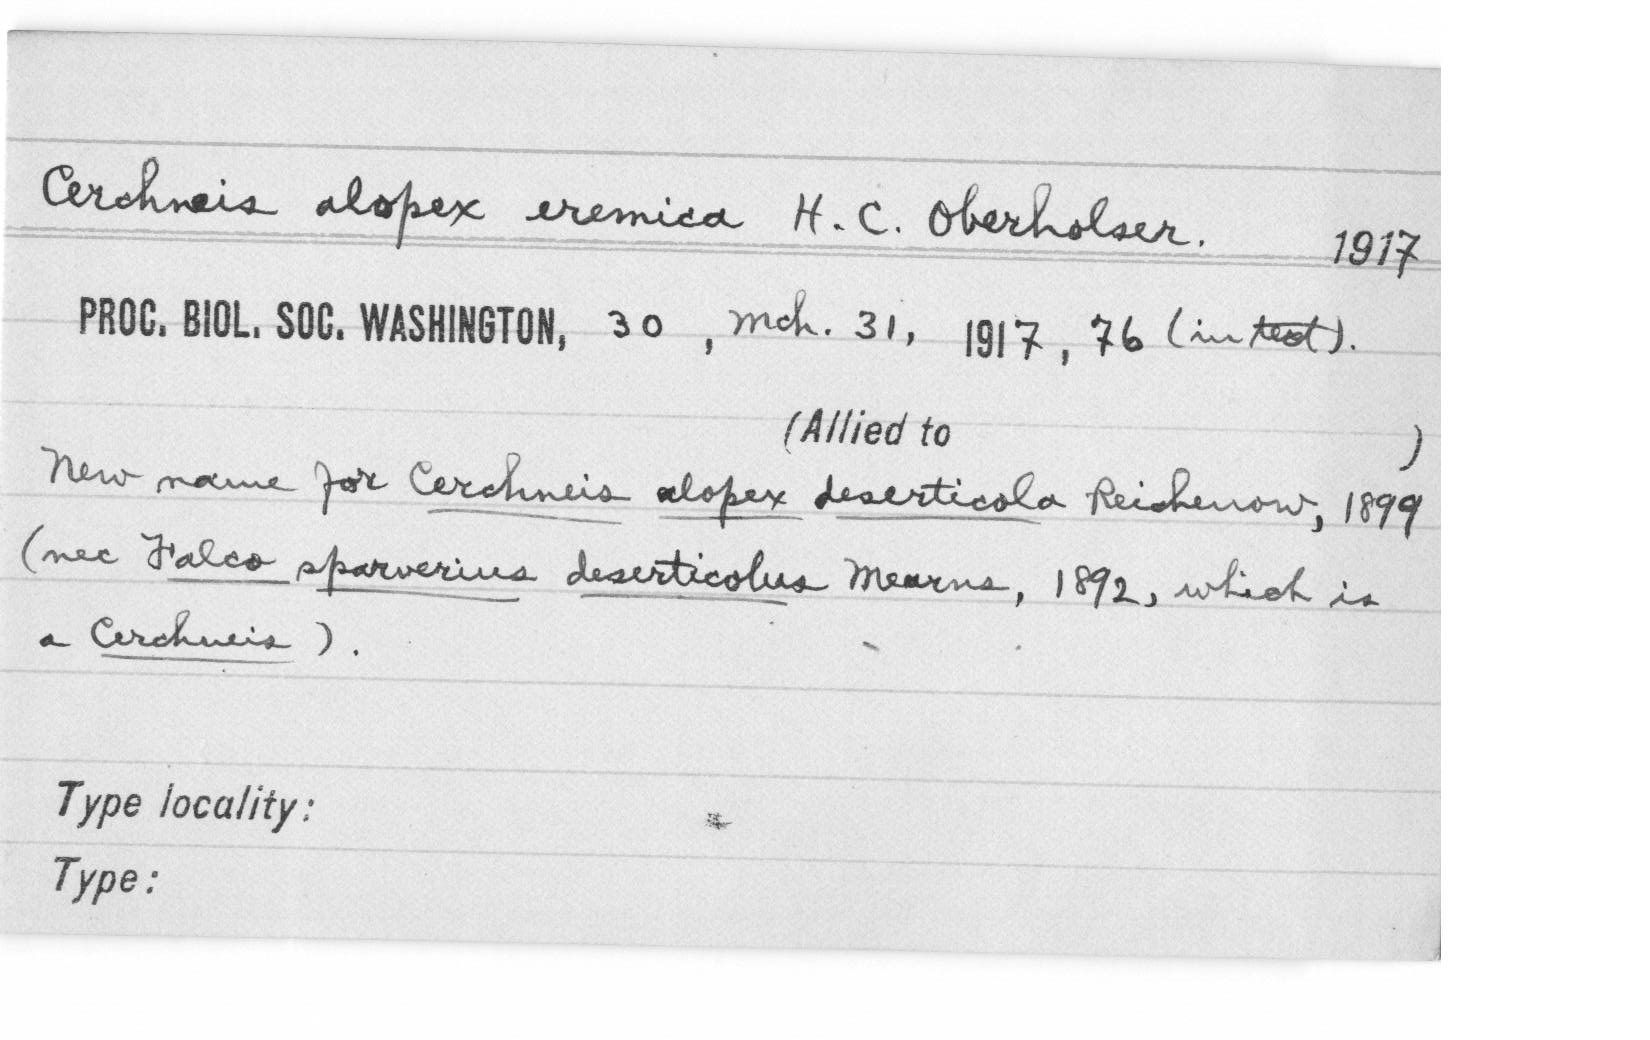 Cerchneis alopex eremica H. C. Oberholser. 1917
PROC. BIOL. SOC. WASHINGTON, 30, Mch. 31, 1917, 76 (in text).
(Allied to )
New name for Cerchneis alopex deserticola Reichenow, 1899
(nec Falco sparverius deserticolus Mearns, 1892, which is
a Cerchneis).
Type locality:
Type: